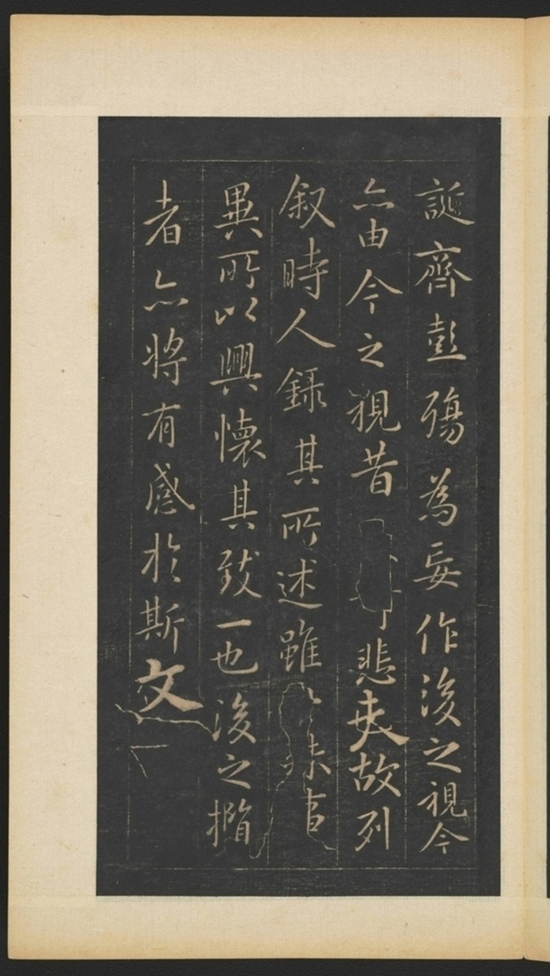 誕齊彭殤為妄作後之視今
亦由今之視昔悲夫故列
叙時人錄其所述雖
異所以興懷其致一也後之攬
者亦将有感於斯文